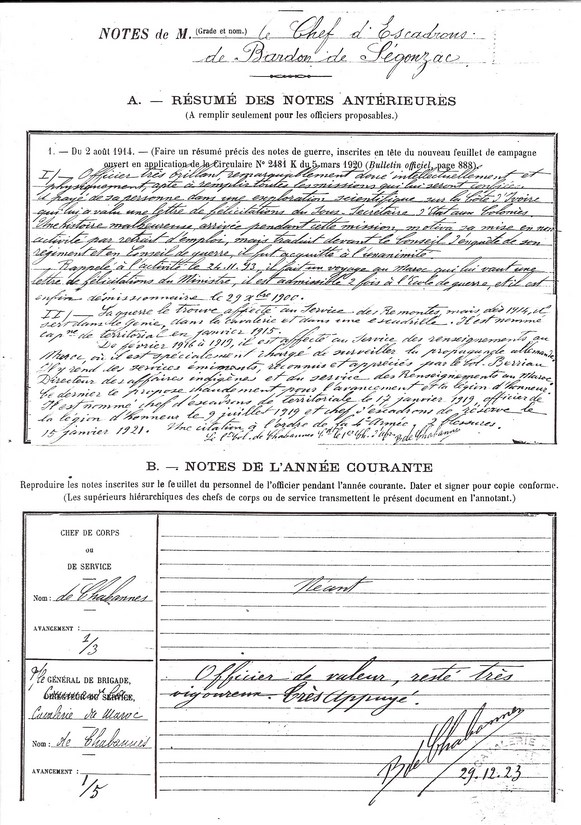 NOTES de M. (Grade et nom.) le Chef d'Escadrons
de Bardon de Ségonzac
A. — RÉSUMÉ DES NOTES ANTÉRIEURES
(A remplir seulement pour les officiers proposables.)
1. — Du 2 août 1914. — (Faire un résumé précis des notes de guerre, inscrites en tête du nouveau feuillet de campagne
ouvert en application de la Circulaire N° 2481 K du 5 mars 1920 (Bulletin officiel, page 888).
I/_ Officier très brillant, remarquablement doué intellectuellement et
physiquement, apte à remplir toutes les missions qui lui seront confiées
il a payé de sa personne dans une exploration scientifique sur la Côte d'Ivoire
qui lui a valu une lettre de félicitations du Sous Secrétaire d'Etat aux Colonies
Une histoire malheureuse arrivée pendant cette mission, motiva sa mise en non
activité par retrait d'emploi, mais traduit devant le Conseil d'enquête de son
régiment et en Conseil de guerre, il fut acquitté à l'unanimité.
Rappelé à l'activité le 24.11.93, il fait un voyage au Maroc qui lui vaut une
lettre de félicitations du Ministre, il est admissible 2 fois à l'Ecole de guerre, et il est
enfin démissionnaire le 29 Xbre 1900.
II/_ La guerre le trouve affecté au Service des Remontes, mais dès 1914, il
sert dans le génie, dans la cavalerie et dans une escadrille. Il est nommé
capne de territorial en janvier 1915.
De février 1916 à 1919, il est affecté au Service des renseignements au
Maroc, où il est spécialement chargé de surveiller la propagande allemande
Il y rend des services éminents, reconnus et appréciés par le Col. Berriau
Directeur des affaires indigènes et du service des Renseignements au Maroc,
Ce dernier le propose chaudement pour l'avancement et la légion d'honneur.
Il est nommé chef d'escadrons de territoriale le 17 janvier 1919, officier de
la légion d'honneur le 9 juillet 1919 et chef d'escadrons de réserve le
15 janvier 1921. Une citation à l'ordre de la 4e Armée 2 blessures.
Le Lt Col. de Chabannes Cdt le 1er Ch. d'Afrique B de Chabannes
B. — NOTES DE L'ANNÉE COURANTE
Reproduire les notes inscrites sur le feuillet du personnel de l'officier pendant l'année courante. Dater et signer pour copie conforme.
(Les supérieurs hiérarchiques des chefs de corps ou de service transmettent le présent document en l'annotant.)
CHEF DE CORPS
ou
DE SERVICE
Nom: de Chabannes
Néant
AVANCEMENT :
2/3
P/le GÉNÉRAL DE BRIGADE,
DIRECTEUR DU SERVICE,
Cavalerie du Maroc
Nom : de Chabannes
AVANCEMENT :
1/5
Officier de valeur, resté très
vigoureux. Très appuyé.
B de Chabannes
29.12.23
CAVALERIE